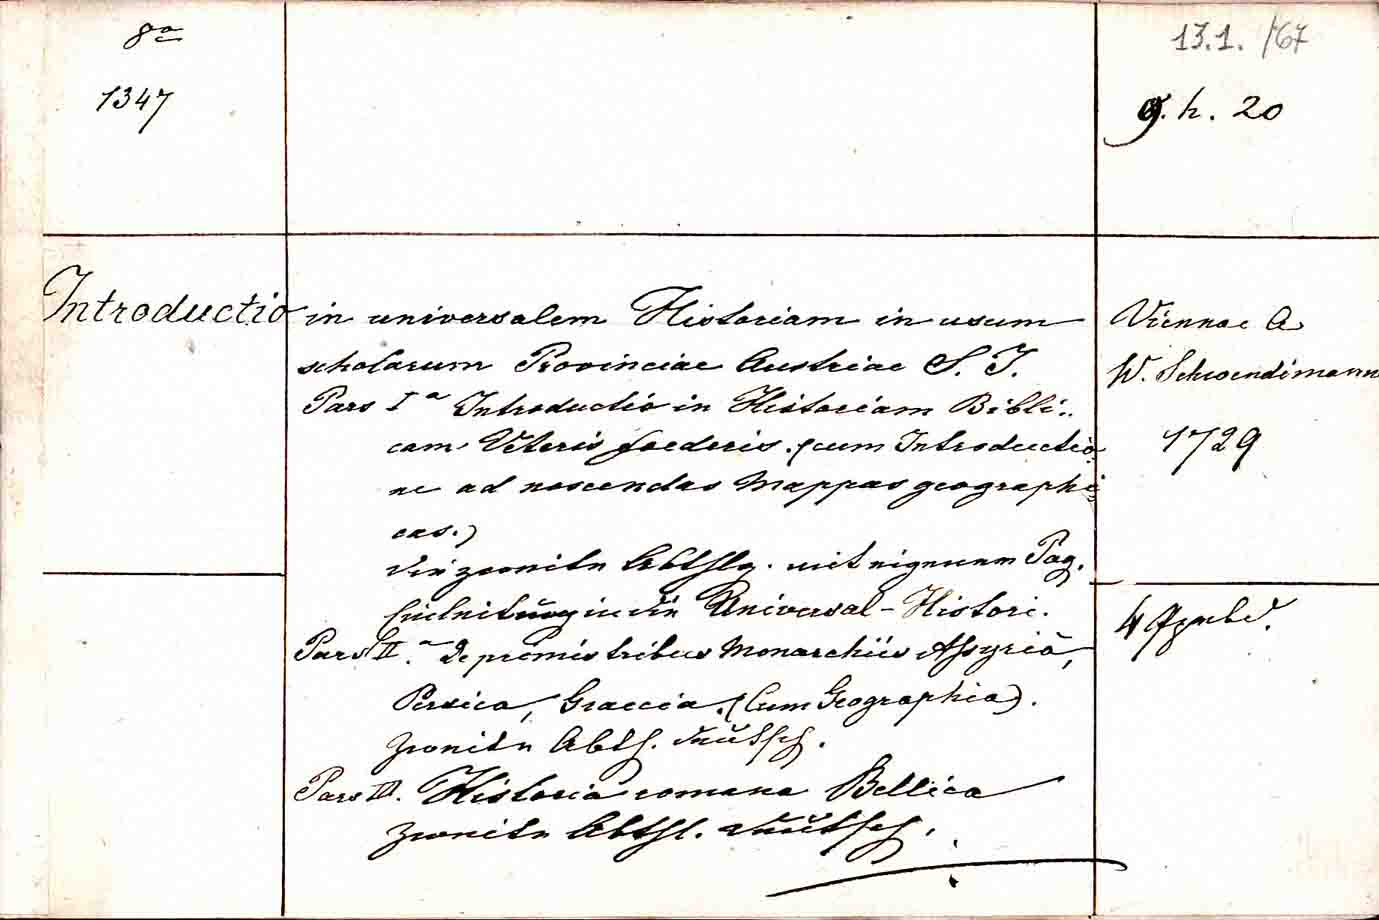 8º
1347
13.1. /67
g. h. 20
Introductio in universalem Historiam in usum
scholarum Provinciae Austriae S. J.
Pars Iª Introductio in Historiam Bibli-
cam Veteris foederis. (cum Introductio
ne ad noscendas Mappas geographi
cas.)
die zweite Abthlg. mit eigenem Pag.
Einleitung in die Universal-Histori.
Pars II.ª De primis tribus Monarchiis Assyria,
Persica, Graecia. (Cum Geographia).
zweite Abth. deutsch.
Pars III. Historia romana Bellica
zweite Abthl. deutsch.
Viennae A
W. Schwendimann
1729
4